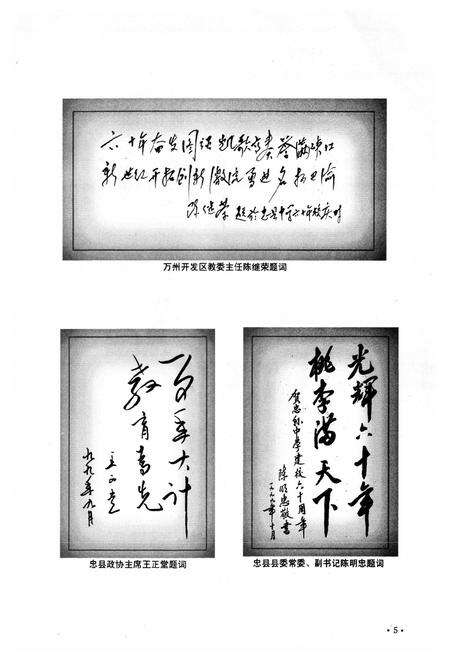 六十年奋发图强 凯歌高奏誉满峡江
新世纪开拓创新 激流勇进名扬巴渝
陈继荣 题於忠县中学六十年校庆时
万州开发区教委主任陈继荣题词
百年大计
教育为先
王正堂
九九年九月
忠县政协主席王正堂题词
光辉六十年
桃李满天下
贺忠县中学建校六十周年
陈明忠敬书
一九九九年十月
忠县县委常委、副书记陈明忠题词
·5·